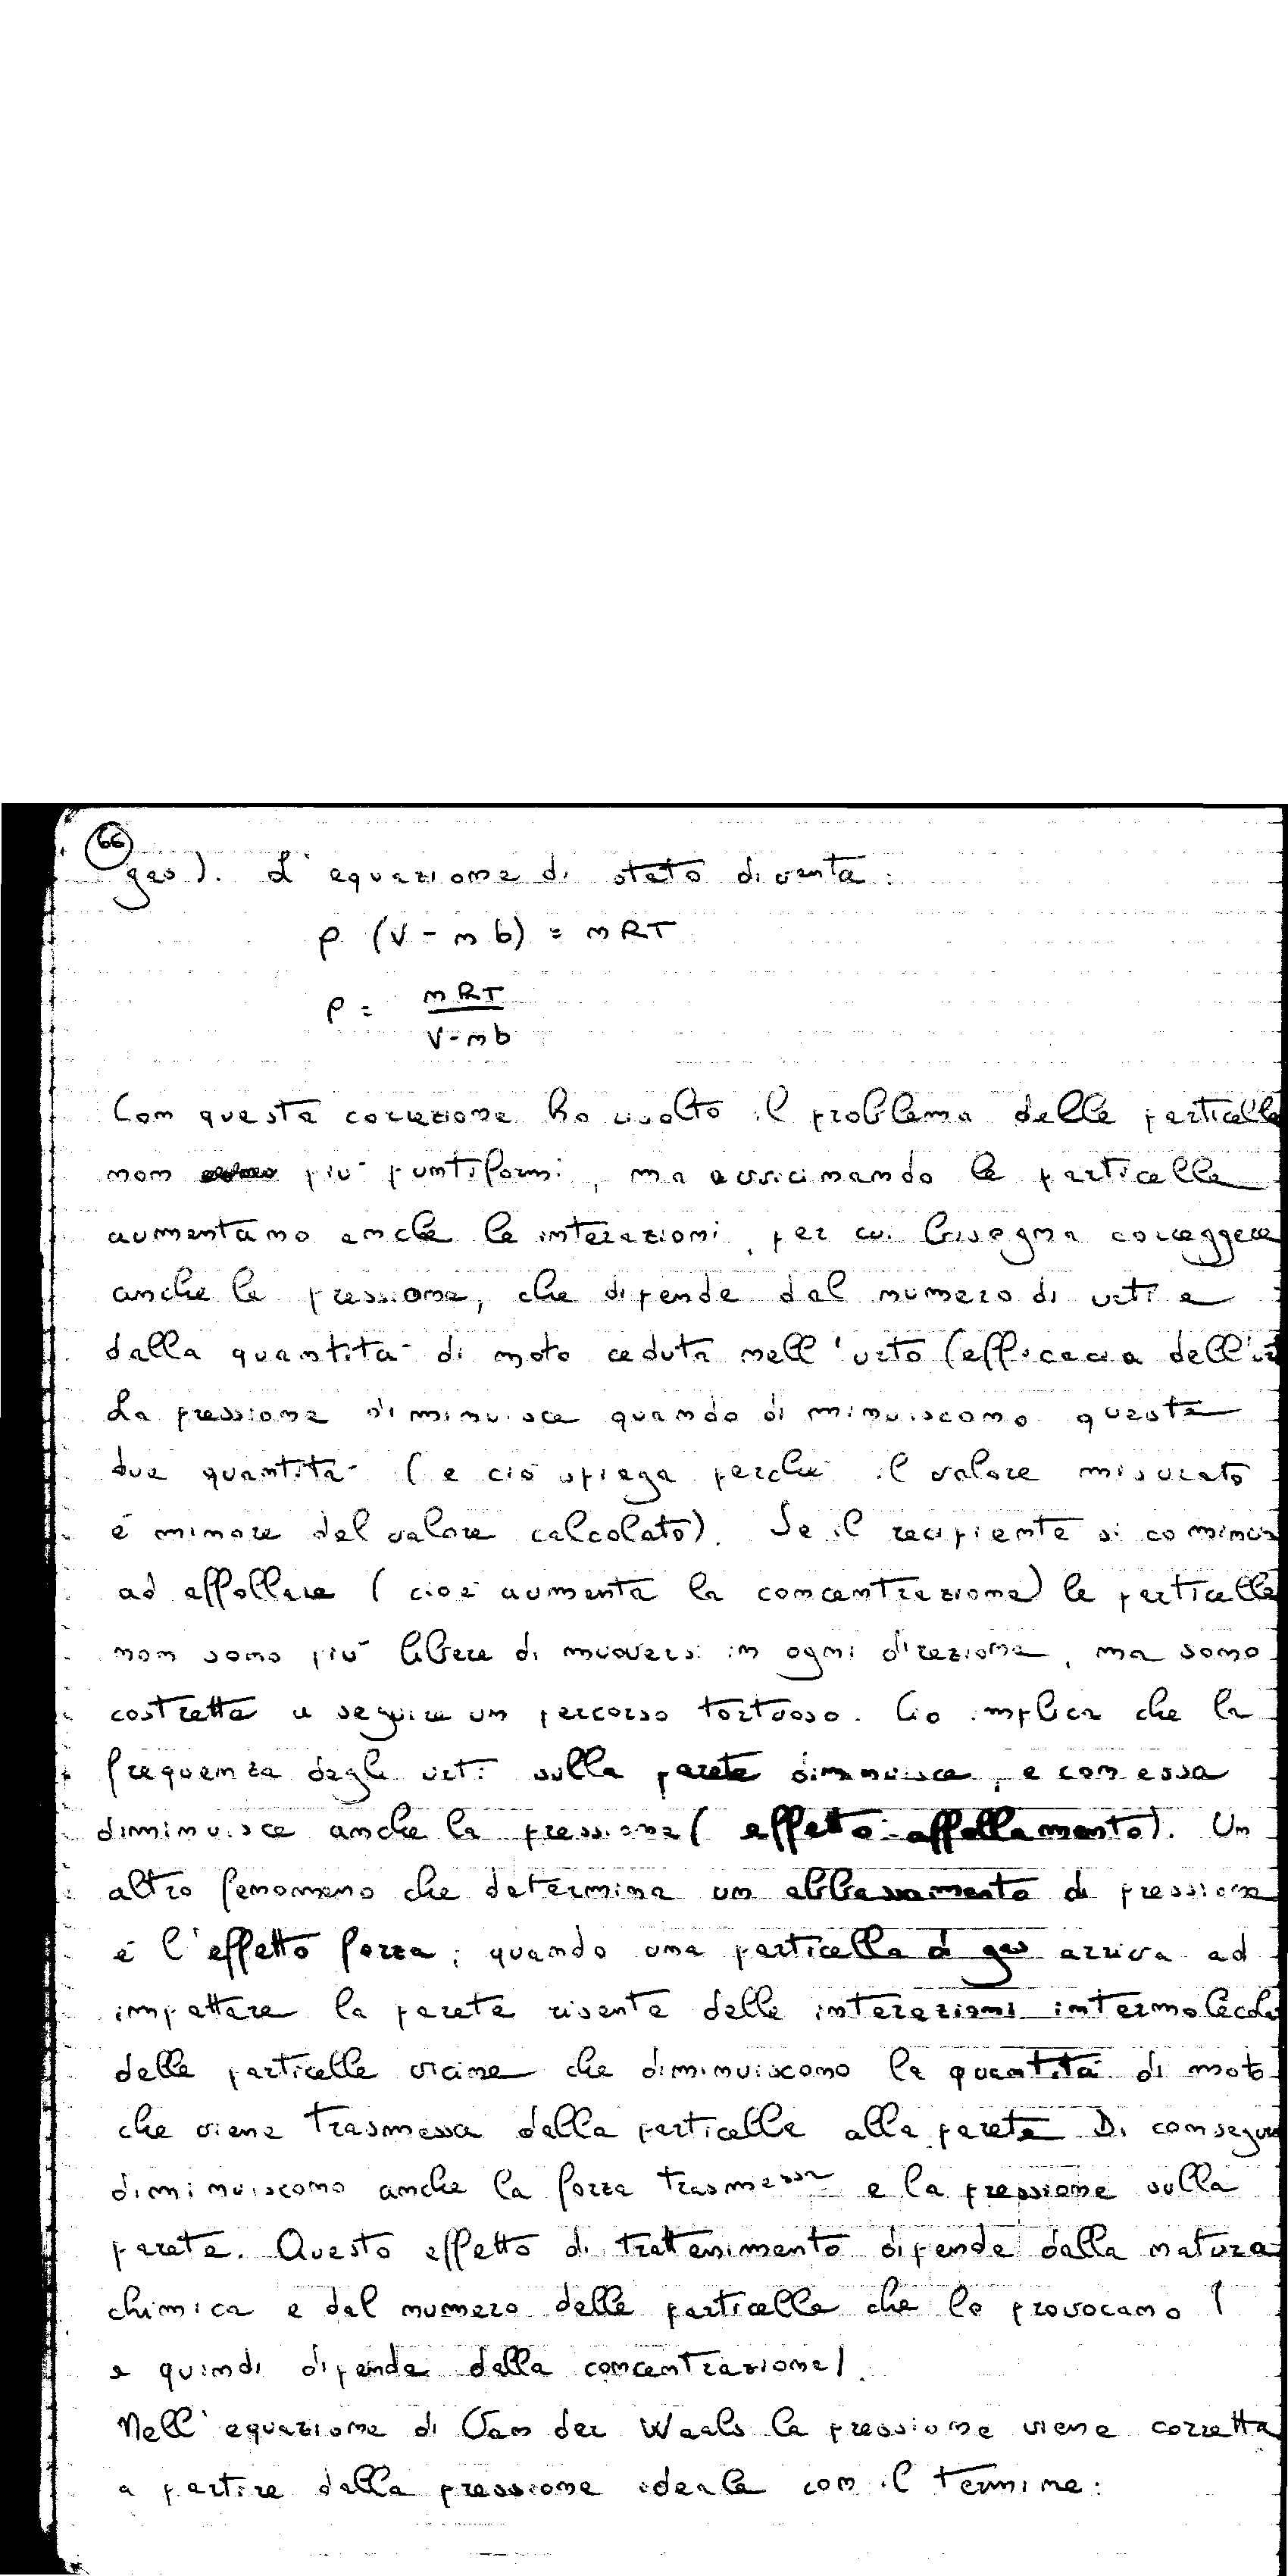 66
gas). L'equazione di stato diventa:
P (V - nb) = nRT
P = nRT
V-nb
Con questa correzione ho risolto il problema delle particelle
non più puntiformi, ma avvicinando le particelle
aumentano anche le interazioni, per cui bisogna correggere
anche la pressione, che dipende dal numero di urti e
dalla quantità di moto ceduta nell'urto (efficacia dell'
La pressione diminuisce quando diminuiscono queste
due quantità (e ciò spiega perché il valore misurato
è minore del valore calcolato). Se il recipiente si comincia
ad affollare (cioè aumenta la concentrazione) le particelle
non sono più libere di muoversi in ogni direzione, ma sono
costrette a seguire un percorso tortuoso. Ciò implica che la
frequenza degli urti sulla parete diminuisce, e con essa
diminuisce anche la pressione (effetto affollamento). Un
altro fenomeno che determina un abbassamento di pressione
è l'effetto forza; quando una particella di gas arriva ad
impattare la parete risente delle interazioni intermolecola
delle particelle vicine che diminuiscono la quantità di moto
che viene trasmessa dalla particella alla parete. Di consegue
diminuiscono anche la forza trasmessa e la pressione sulla
parete. Questo effetto di trattenimento dipende dalla natura
chimica e dal numero delle particelle che lo provocano (
e quindi dipende dalla concentrazione).
Nell'equazione di Van der Waals la pressione viene corretta
a partire dalla pressione ideale con il termine: